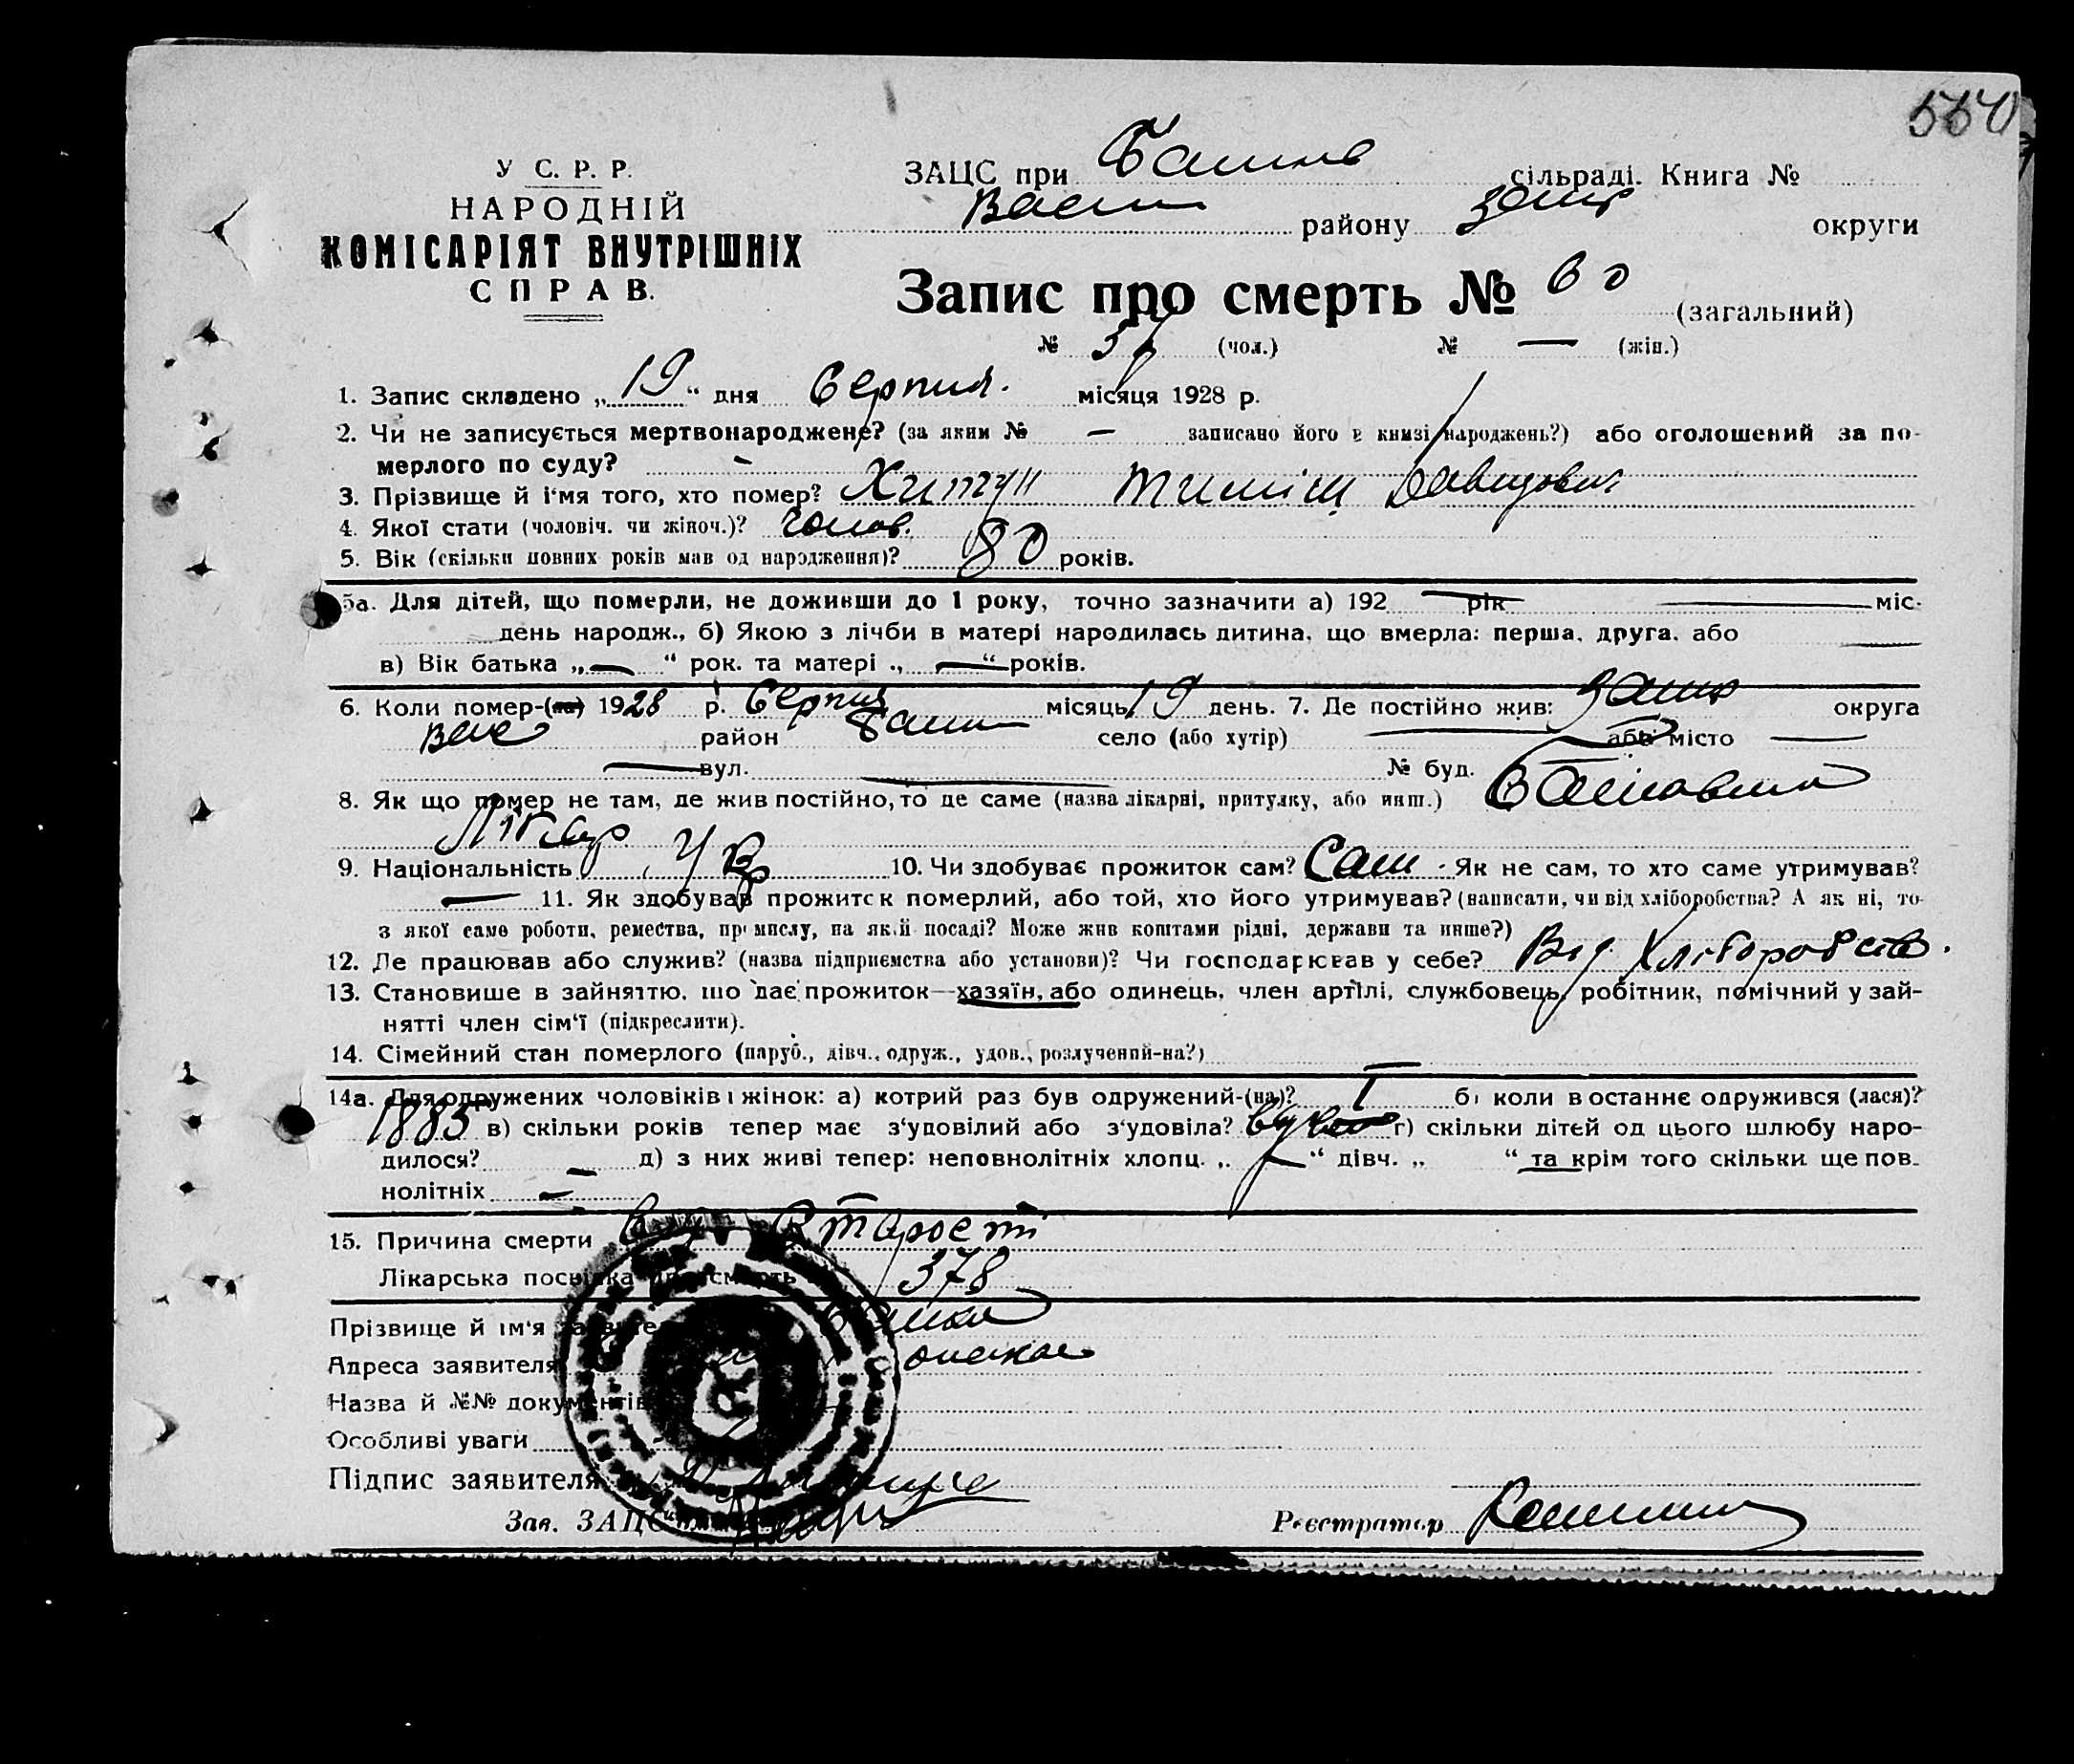 550
У С. Р. Р.
НАРОДНІЙ
КОМІСАРІЯТ ВНУТРІШНІХ
СПРАВ.
ЗАЦС при сільраді. Книга №
району округи
Запис про смерть № 60 (загальний)
№ 37 (чол.) № — (жін.)
1. Запис складено „19“ дня Серпня місяця 1928 р.
2. Чи не записується мертвонароджене? (за яким № — записано його в книзі народжень?) або оголошений за по-
мерлого по суду? -
3. Прізвище й і'мя того, хто помер? Хитун Тиміш Давидович
4. Якої стати (чоловіч. чи жіноч.)? чолов.
5. Вік (скільки повних років мав од народження)? 80 років.
5а. Для дітей, що померли, не доживши до 1 року, точно зазначити а) 192 рік міс.
день народж., б) Якою з лічби в матері народилась дитина, що вмерла: перша, друга, або
в) Вік батька „—“ рок. та матері „—“ років.
6. Коли помер-(ла) 1928 р. Серпня місяць 19 день. 7. Де постійно жив: округа
район село (або хутір) — або місто —
— вул. — № буд.
8. Як що помер не там, де жив постійно, то де саме (назва лікарні, притулку, або инш.)
Лікар
9. Національність Укр 10. Чи здобуває прожиток сам? Сам. Як не сам, то хто саме утримував?
— 11. Як здобував прожиток померлий, або той, хто його утримував? (написати, чи від хліборобства? А як ні, то
з якої саме роботи, ремества, промислу, на якій посаді? Може жив коштами рідні, держави та инше?)
12. Де працював або служив? (назва підприємства або установи)? Чи господарював у себе? Від Хліборобства.
13. Становище в зайняттю, що дає прожиток—хазяїн, або одинець, член артілі, службовець, робітник, помічний у зай-
нятті член сім'ї (підкреслити).
14. Сімейний стан померлого (паруб., дівч., одруж., удов., розлучений-на?)
14а. Для одружених чоловіків і жінок: а) котрий раз був одружений-(на)? I б) коли востаннє одружився (лася)?
1885 в) скільки років тепер має з'удовілий або з'удовіла? г) скільки дітей од цього шлюбу наро-
дилося? — д) з них живі тепер: неповнолітніх хлопц. „—“ дівч. „ “ та крім того скільки ще пов-
нолітніх —
15. Причина смерти Від Старості
Лікарська посвідка про смерть 378
Прізвище й ім'я заявителя
Адреса заявителя
Назва й №№ документів
Особливі уваги
Підпис заявителя
Зав. ЗАЦС'ом
Реєстратор